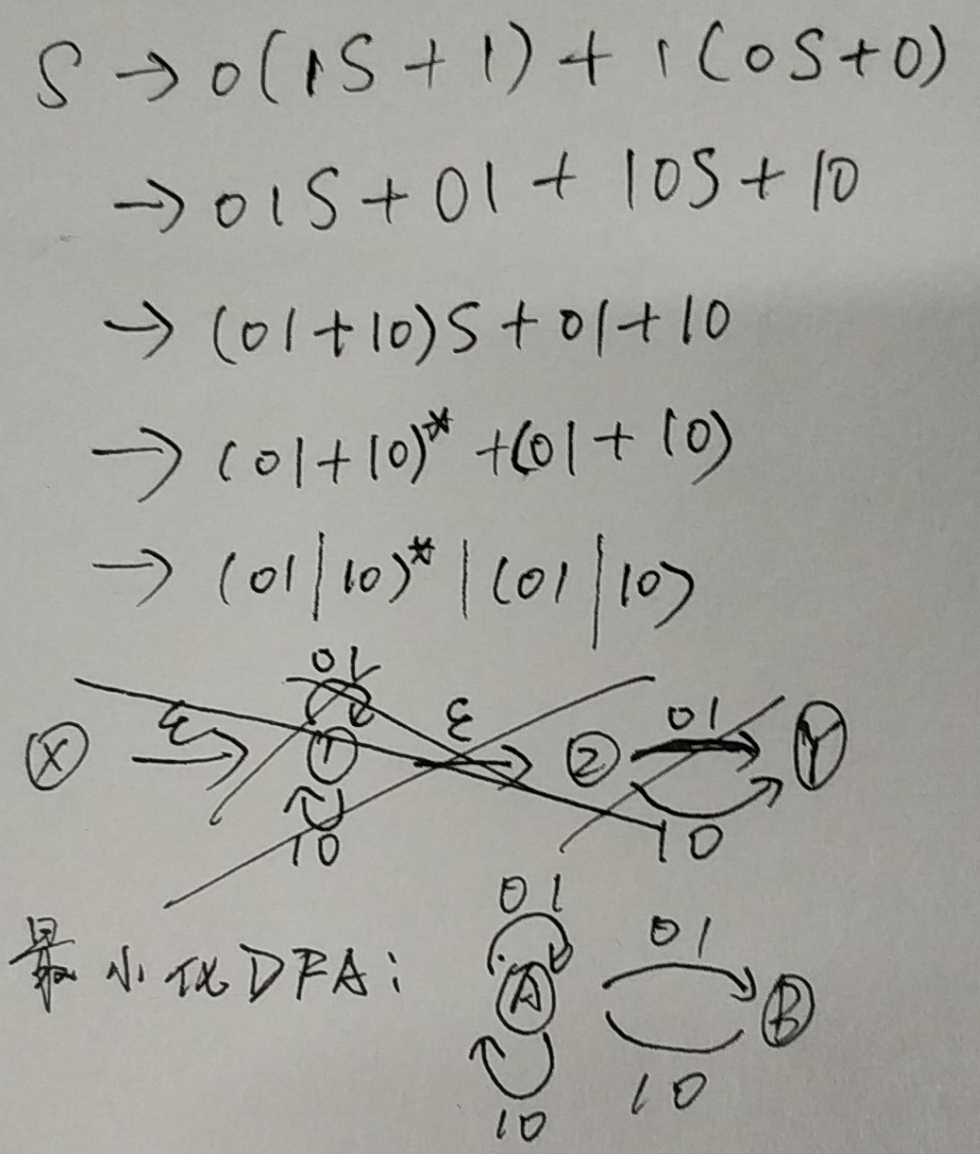 S → 0(1S + 1) + 1(0S+0)
→ 01S + 01 + 10S + 10
→ (01+10)S + 01 + 10
→ (01+10)* +(01 + 10)
→ (01|10)* | (01|10)
01
X ε 1 ε 2 01 Y
10 10
01
最小化DFA: A 01 B
10 10